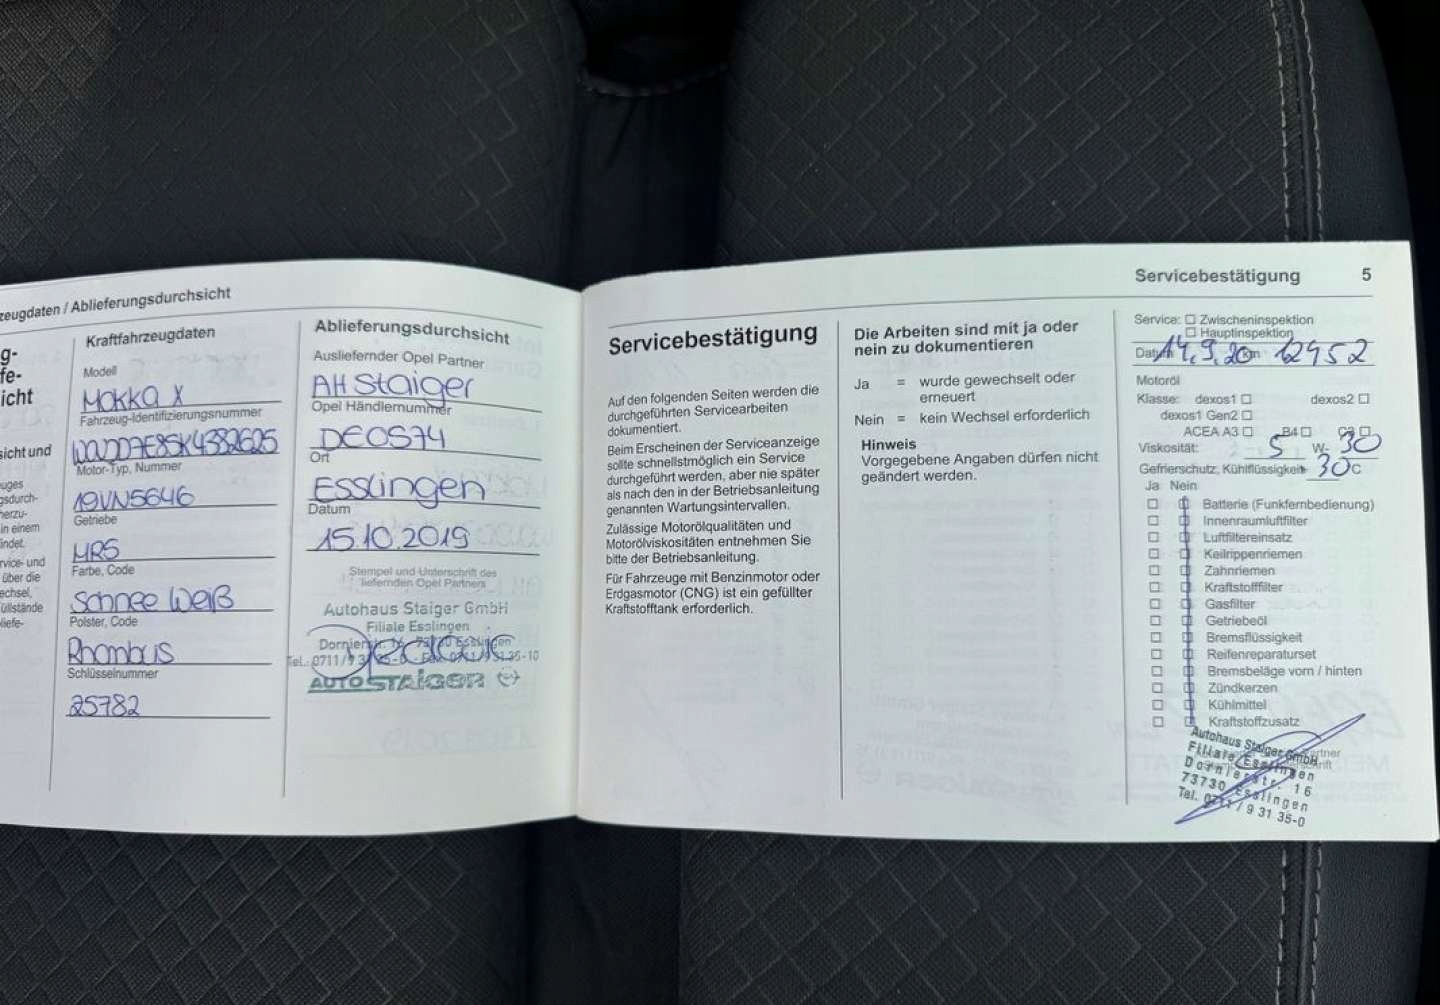 zeugdaten / Ablieferungsdurchsicht
g-
fe-
icht
sicht und
uges
gsdurch-
herzu-
in einem
indet.
rvice- und
über die
echsel,
üllstände
liefe-
Kraftfahrzeugdaten
Modell
Mokka X
Fahrzeug-Identifizierungsnummer
W0JDD7E85K4382625
Motor-Typ, Nummer
19VN5646
Getriebe
MR5
Farbe, Code
Schnee Weiß
Polster, Code
Rhombus
Schlüsselnummer
25782
Ablieferungsdurchsicht
Ausliefernder Opel Partner
AH Staiger
Opel Händlernummer
DEOS74
Ort
Esslingen
Datum
15.10.2019
Stempel und Unterschrift des
liefernden Opel Partners
Autohaus Staiger GmbH
Filiale Esslingen
Dornierstr. 16 73730 Esslingen
Tel. 0711/9 31 35-0 Fax 0711/9 31 35-10
AUTO STAIGER
Servicebestätigung
Auf den folgenden Seiten werden die
durchgeführten Servicearbeiten
dokumentiert.
Beim Erscheinen der Serviceanzeige
sollte schnellstmöglich ein Service
durchgeführt werden, aber nie später
als nach den in der Betriebsanleitung
genannten Wartungsintervallen.
Zulässige Motorölqualitäten und
Motorölviskositäten entnehmen Sie
bitte der Betriebsanleitung.
Für Fahrzeuge mit Benzinmotor oder
Erdgasmotor (CNG) ist ein gefüllter
Kraftstofftank erforderlich.
Die Arbeiten sind mit ja oder
nein zu dokumentieren
Ja = wurde gewechselt oder
erneuert
Nein = kein Wechsel erforderlich
Hinweis
Vorgegebene Angaben dürfen nicht
geändert werden.
Servicebestätigung 5
Service: Zwischeninspektion
Hauptinspektion
Datum 14.9.20 km 12952
Motoröl
Klasse: dexos1 dexos2
dexos1 Gen2
ACEA A3 B4 C3
Viskosität: 5 W- 30
Gefrierschutz, Kühlflüssigkeit 30 C
Ja Nein
Batterie (Funkfernbedienung)
Innenraumluftfilter
Luftfiltereinsatz
Keilrippenriemen
Zahnriemen
Kraftstofffilter
Gasfilter
Getriebeöl
Bremsflüssigkeit
Reifenreparaturset
Bremsbeläge vorn / hinten
Zündkerzen
Kühlmittel
Kraftstoffzusatz
Autohaus Staiger GmbH
Filiale Esslingen
Dornierstr. 16
73730 Esslingen
Tel. 0711/9 31 35-0